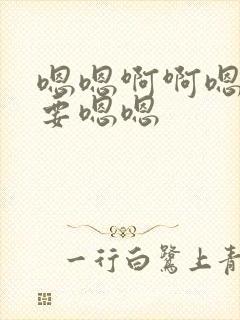 嗯嗯啊啊嗯
要嗯嗯
一行白鹭上青